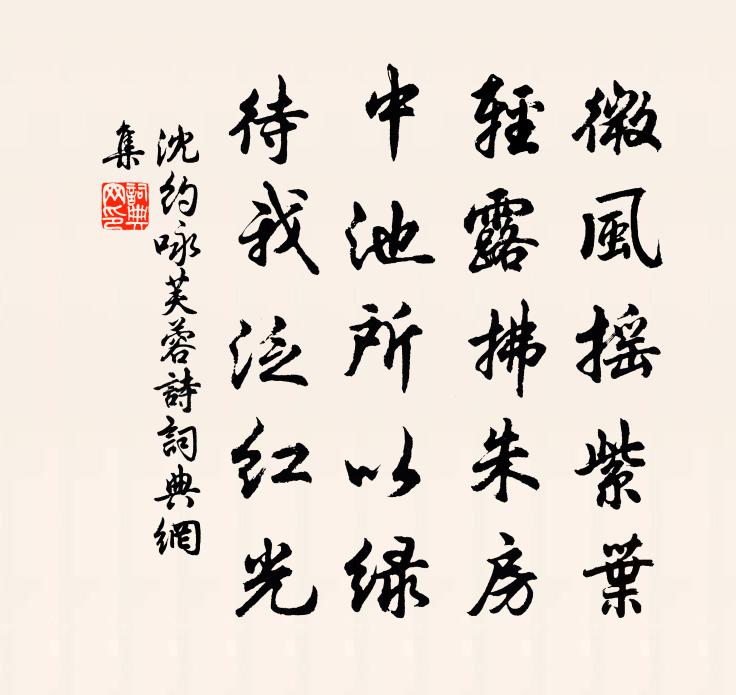 微風摇紫葉
輕露拂朱房
中池所以緑
待我泛红光
沈約咏芙蓉詩詞典網
集
詞典
网印